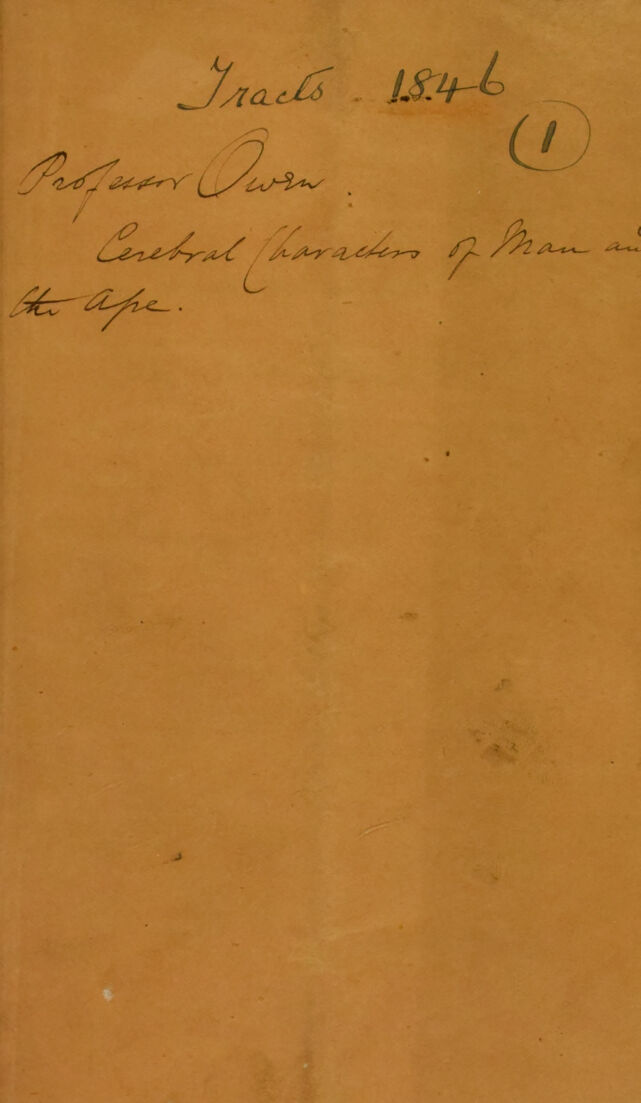 Tracts. 1846
(1)
Professor Owen.
Cerebral Characters of Man an
the Ape.